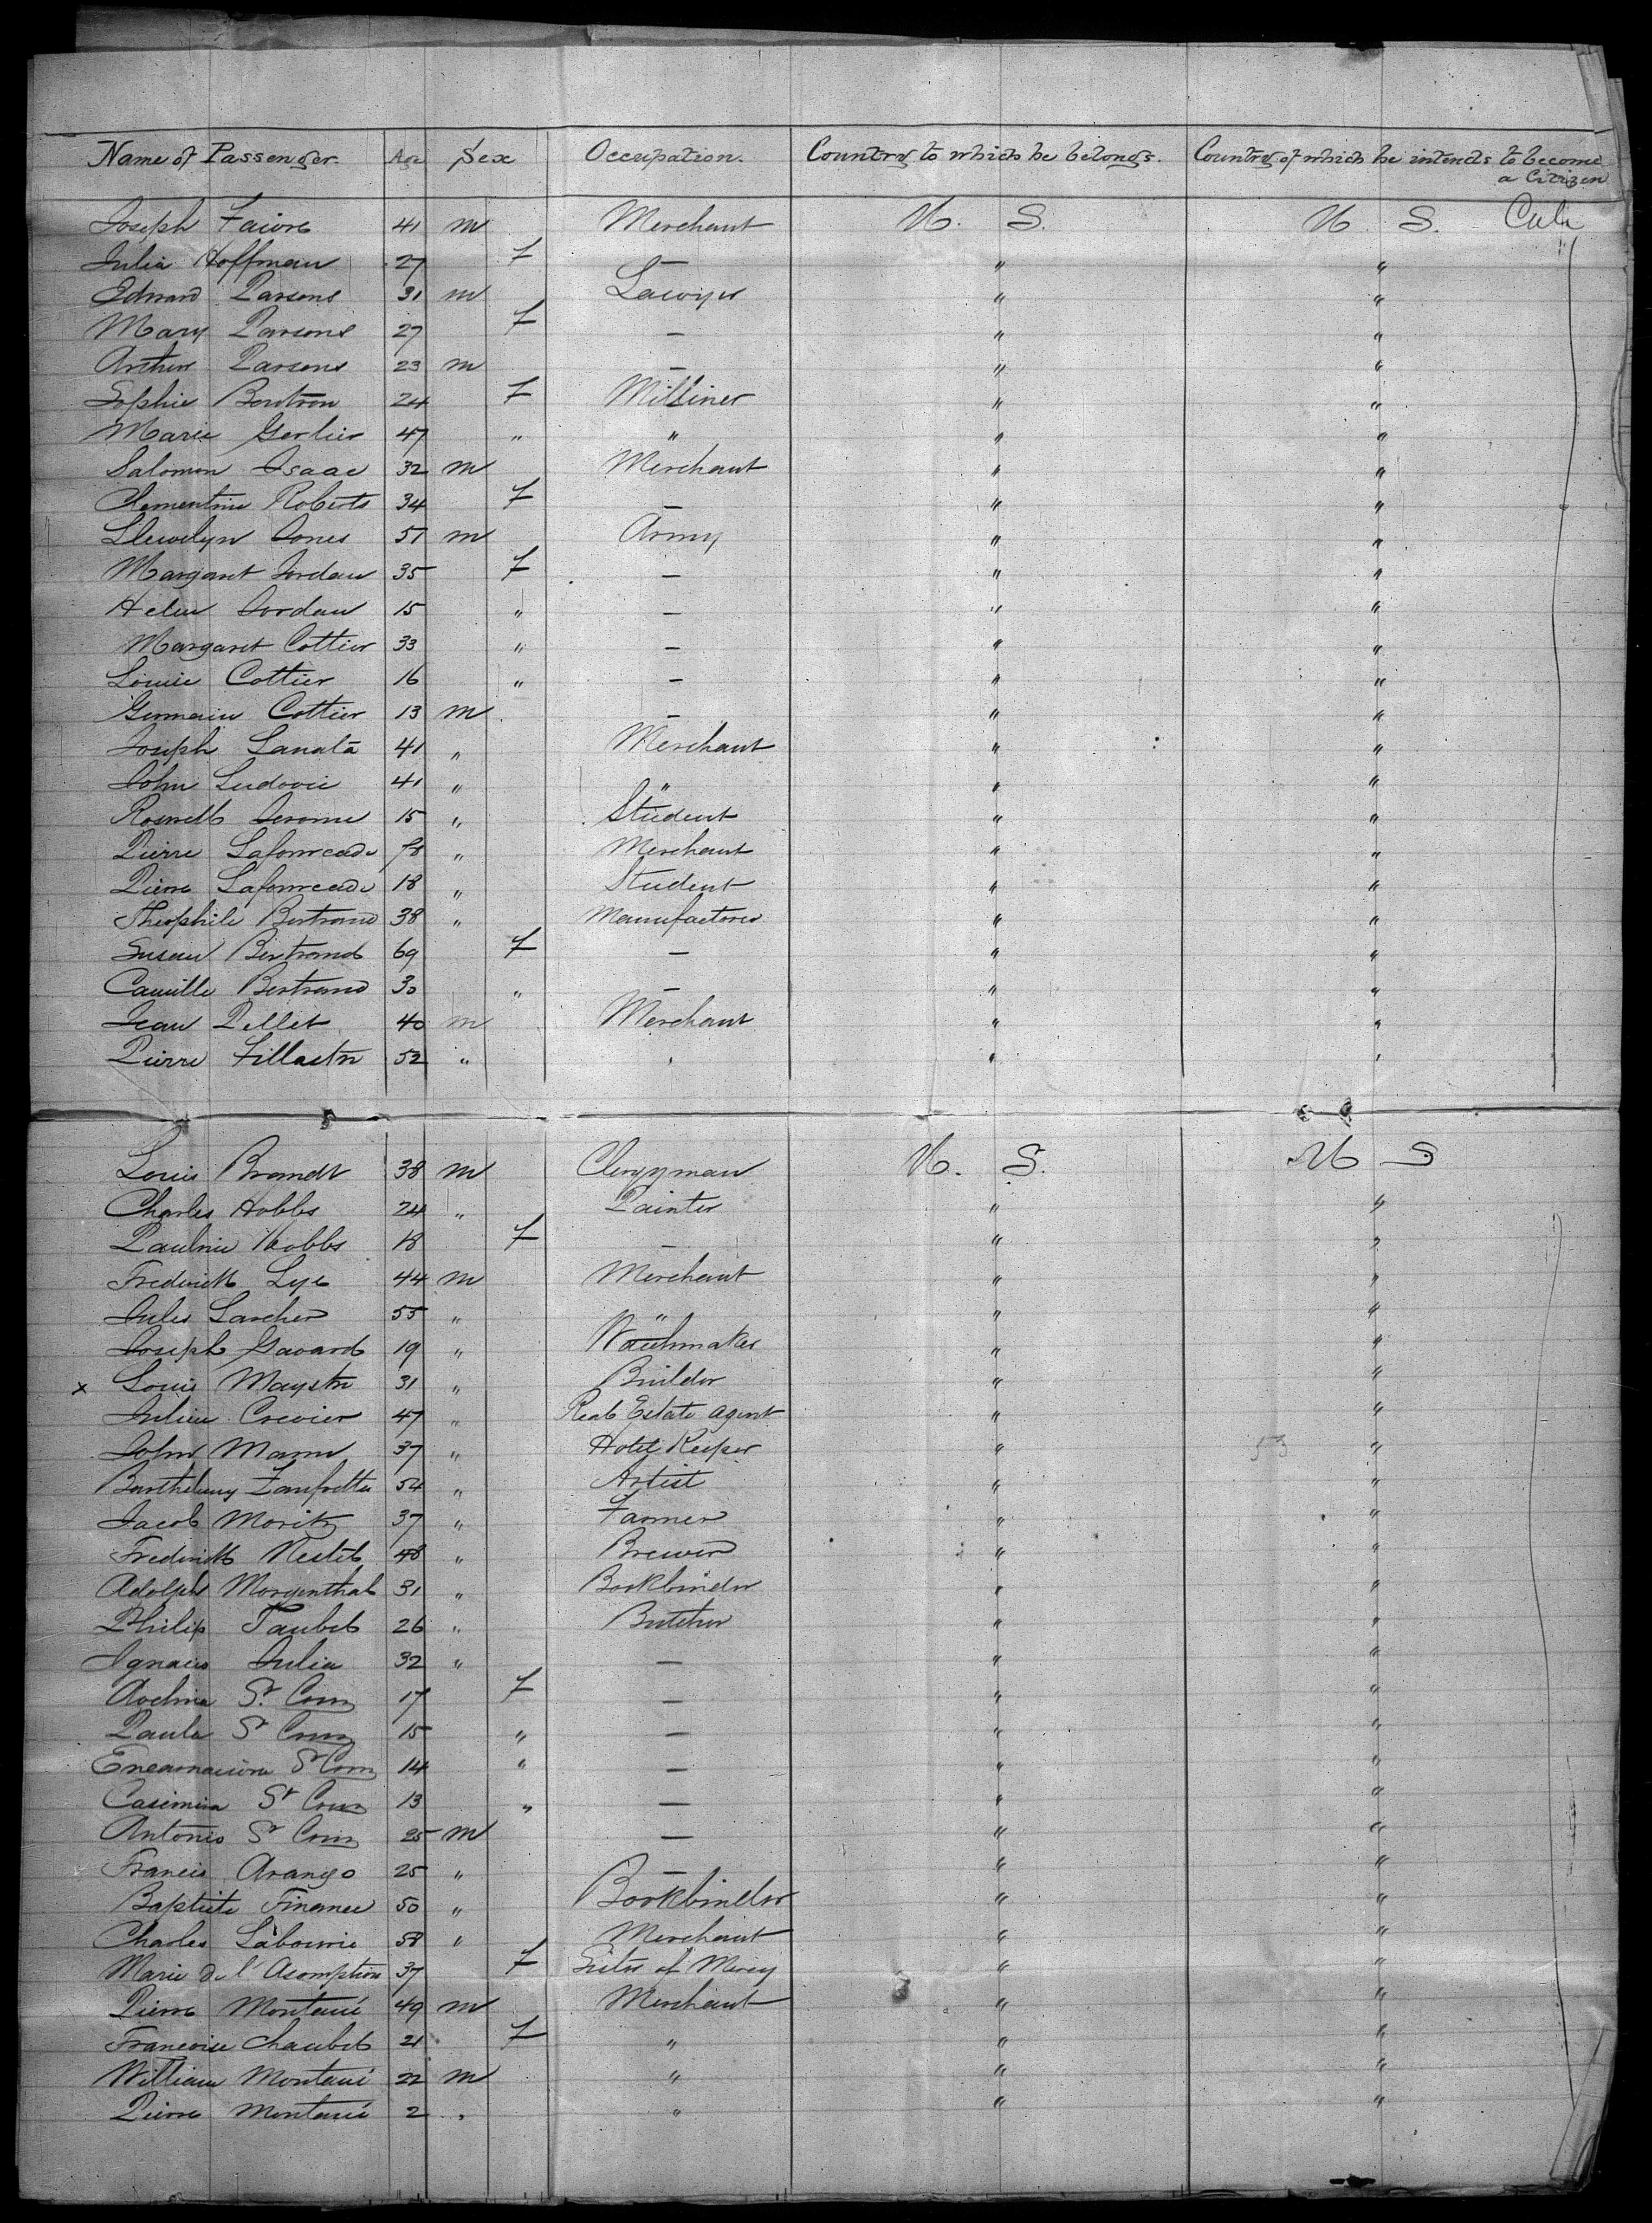 Name of Passenger. Age Sex Occupation. Country to which he belongs. Country of which he intends to become a Citizen
Joseph Faivre 41 m Merchant U. S. U. S. Cab
Julia Hoffman 27 F — " "
Edward Parsons 31 m Lawyer " "
Mary Parsons 27 F — " "
Arthur Parsons 23 m — " "
Sophie Boutron 24 F Milliner " "
Marie Gerlier 47 " " " "
Salomon Isaac 32 m Merchant " "
Clementine Roberts 34 F — " "
Llewelyn Jones 51 m Army " "
Margaret Jordan 35 F — " "
Helen Jordan 15 " — " "
Margaret Cottier 33 " — " "
Louise Cottier 16 " — " "
Germain Cottier 13 m — " "
Joseph Lanata 41 " Merchant " "
John Ludovic 41 " " " "
Roswell Jerome 15 " Student " "
Pierre Lafourcade 78 " Merchant " "
Pierre Lafourcade 18 " Student " "
Theophile Bertrand 38 " Manufacturer " "
Susan Bertrand 69 F — " "
Camille Bertrand 30 " — " "
Jean Pellet 40 m Merchant " "
Pierre Fillastre 52 " " " "
Louis Brandt 38 m Clergyman U. S. U S
Charles Hobbs 24 " Painter " "
Pauline Hobbs 18 F — " "
Frederick Lye 44 m Merchant " "
Jules Larcher 55 " " " "
Joseph Gavard 19 " Watchmaker " "
x Louis Maystre 31 " Builder " "
Julien Crevier 47 " Real Estate agent " "
John Mann 37 " Hotel Keeper " "
Barthelemy Zanfretta 54 " Artist " "
Jacob Moritz 37 " Farmer " "
Frederick Nestel 48 " Brewer " "
Adolph Morgenthal 31 " Bookbinder " "
Philip Taubel 26 " Butcher " "
Ignacio Julia 32 " — " "
Avelina St. Cruz 17 F — " "
Paula St Cruz 15 " — " "
Encarnacion St Cruz 14 " — " "
Casimira St Cruz 13 " — " "
Antonio St Cruz 25 m — " "
Francis Arango 25 " — " "
Baptiste Finance 50 " Bookbinder " "
Charles Labourie 58 " Merchant " "
Marie de l'Asomption 37 F Sister of Mercy " "
Pierre Montarié 49 m Merchant " "
Francoise Chaubet 21 F " " "
William Montarié 22 m " " "
Pierre Montarié 2 " " " "